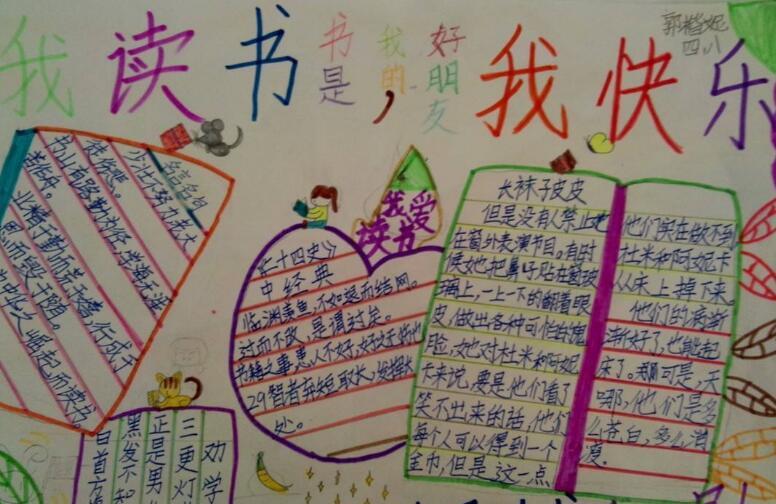 我读书
书是
我的
好朋友
，我快乐
郭楷妮
四.八
名言名句
少壮不努力,老大
徒伤悲。
书山有路勤为径,学海无涯
苦作舟。
业精于勤而荒于嬉,行成于
思而毁于随。
崛起而读书。
我爱
读书
《二十四史》
中经典
临渊羡鱼,不如退而结网。
过而不改,是谓过矣。
长袜子皮皮
但是没有人禁止她
在窗外表演节目。有时
候她把鼻吁贴在窗玻
璃上,一上一下的翻着眼
皮,做出各种可怕的鬼
脸,她也对杜米和阿妮
卡来说,要是他们看了
笑不出来的话,他们
每个人可以得到一个
金币,但是 这一点
他们实在做不到
杜米和阿妮卡
从床上掉下来。
他们的病渐
渐好了,也能起
床了。啊可是,天
哪,他们是多
么苍白,多么消
瘦。
劝学
三更灯
正是男
黑发不知
白首方